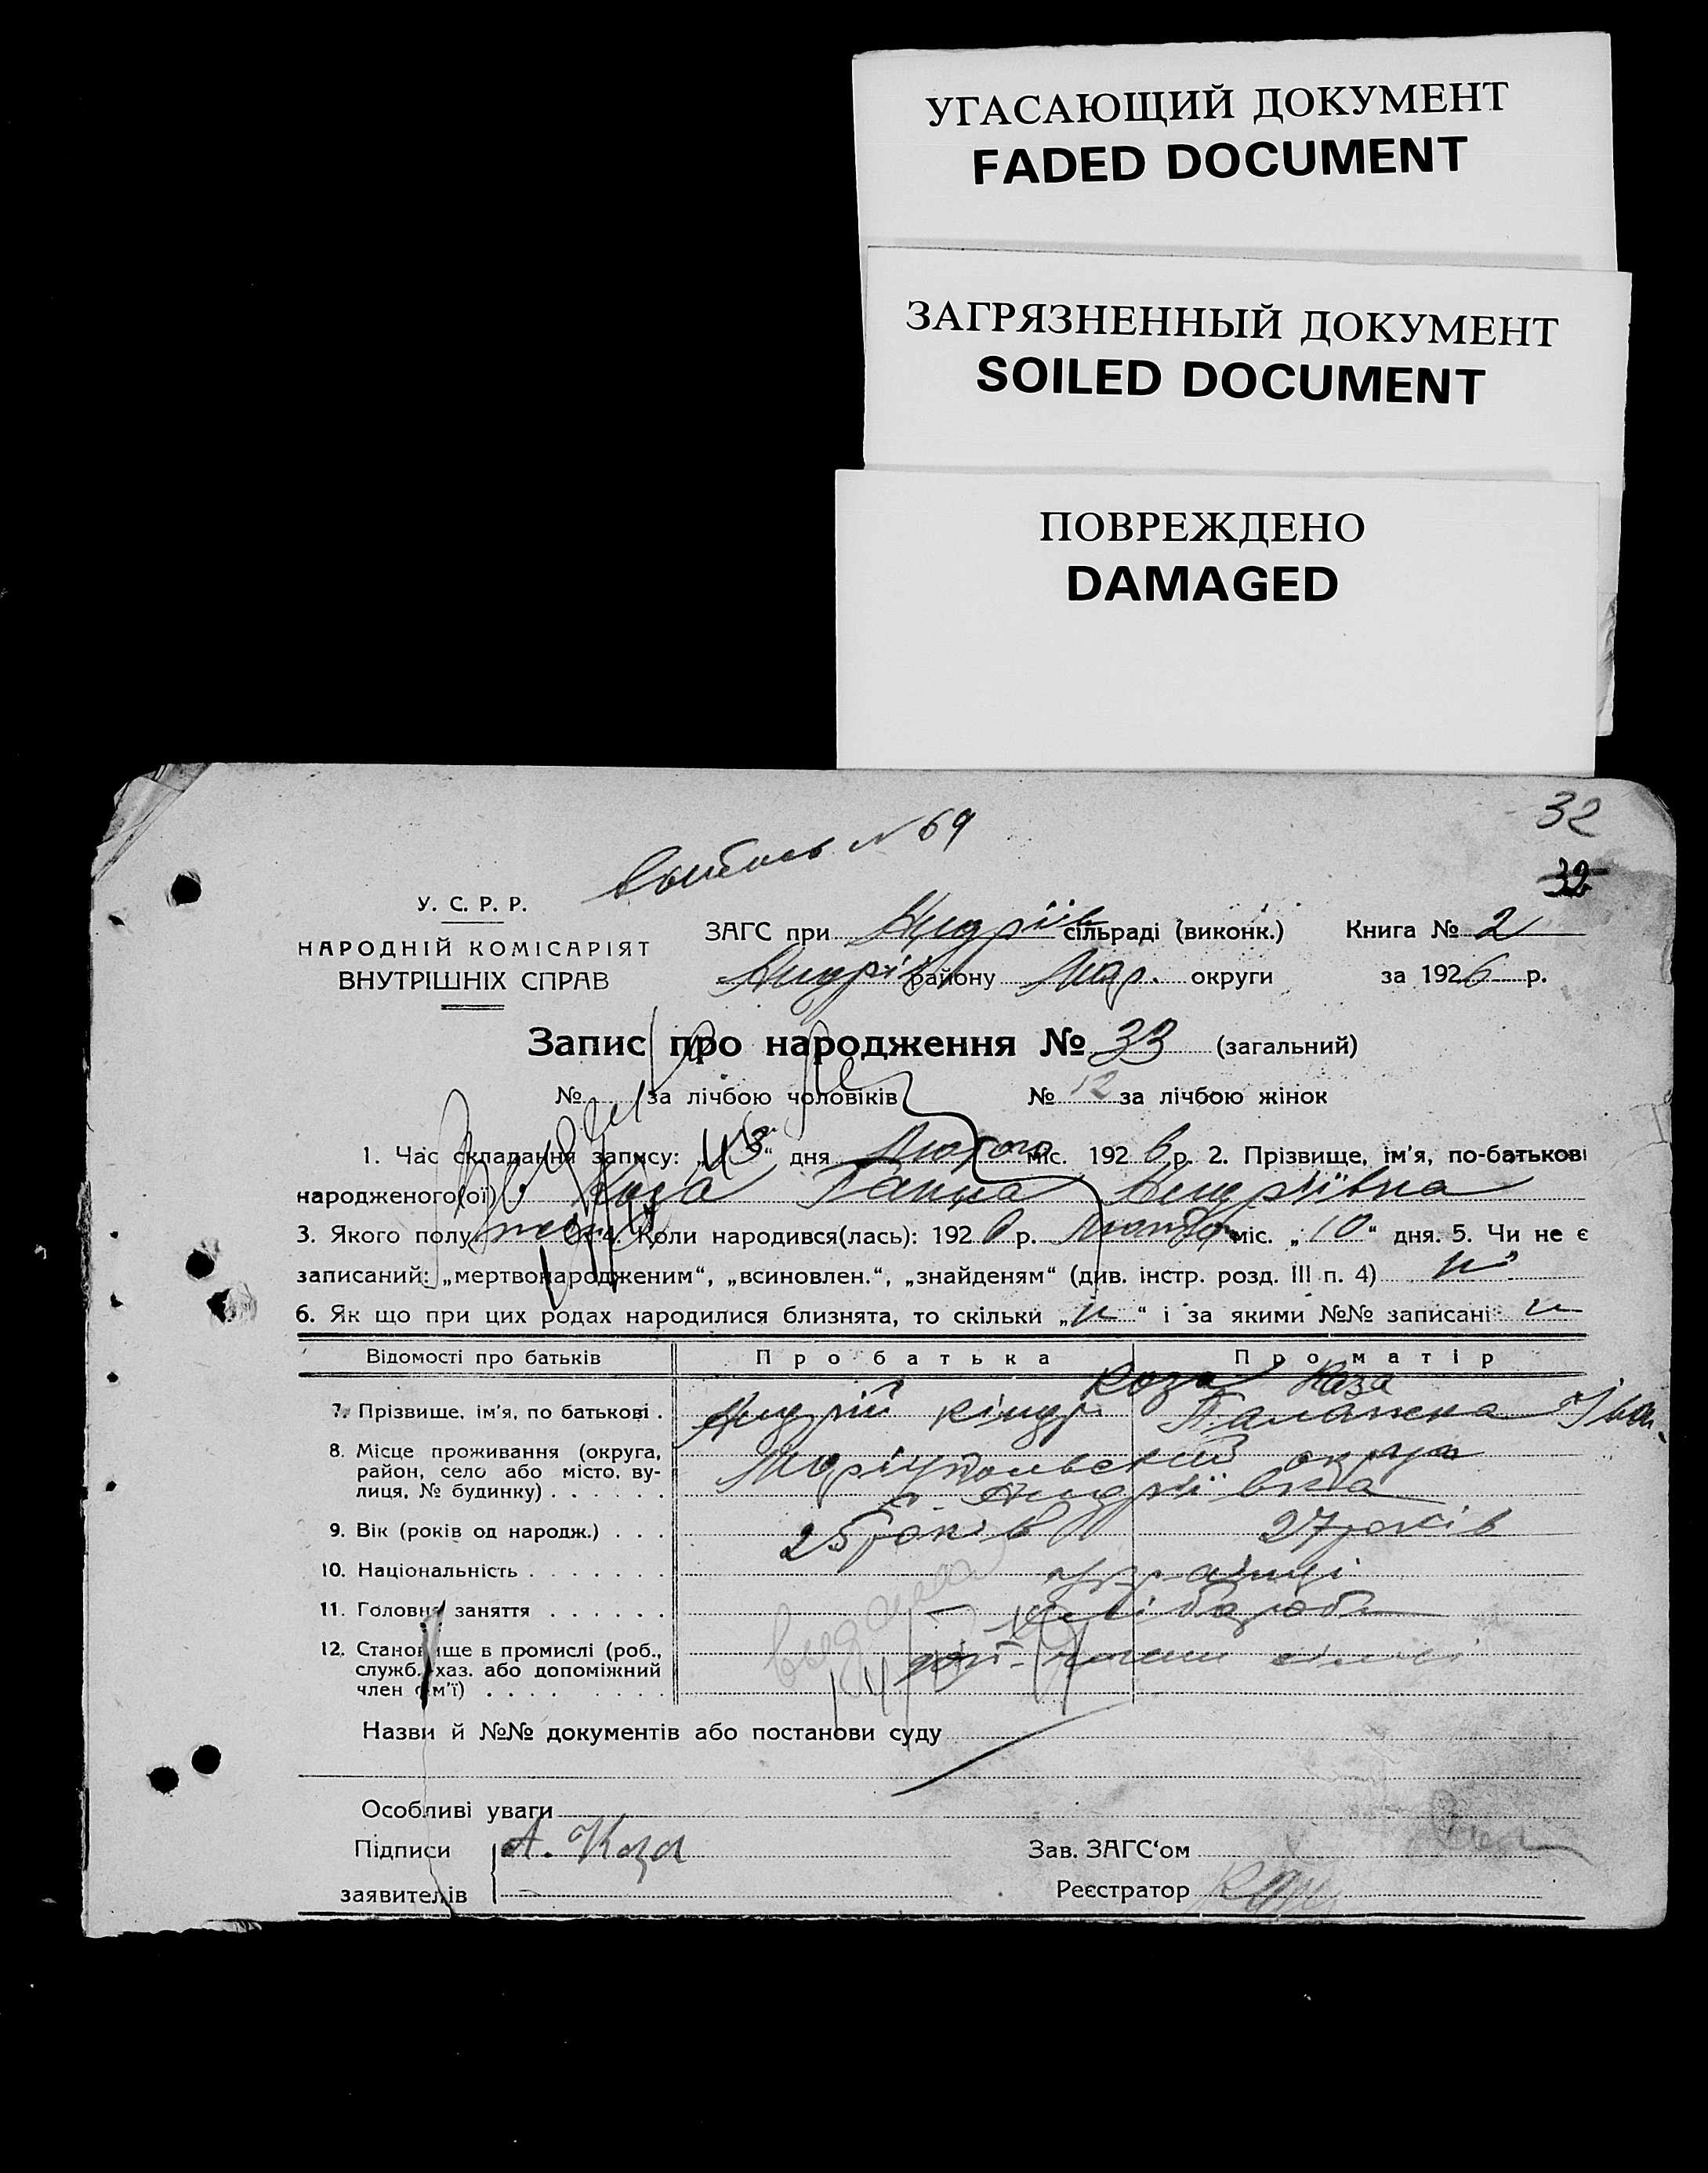 УГАСАЮЩИЙ ДОКУМЕНТ
FADED DOCUMENT
ЗАГРЯЗНЕННЫЙ ДОКУМЕНТ
SOILED DOCUMENT
ПОВРЕЖДЕНО
DAMAGED
32
№ 69
32
У. С. Р. Р.
НАРОДНІЙ КОМІСАРІЯТ
ВНУТРІШНІХ СПРАВ
ЗАГС при Андріїв сільраді (виконк.) Книга № 2
Андріїв району Мар. округи за 1926 р.
Запис про народження № 33 (загальний)
№ за лічбою чоловіків № 12 за лічбою жінок
1. Час складання запису: „13“ дня Лютого міс. 1926 р. 2. Прізвище, ім'я, по-батькові
народженого(ої) Коза Андріївна
3. Якого полу жін 4. Коли народився(лась): 1926 р. Лютого міс. „10“ дня. 5. Чи не є
записаний: „мертвонародженим“, „всиновлен.“, „знайденям“ (див. інстр. розд. III п. 4) ні
6. Як що при цих родах народилися близнята, то скільки „н“ і за якими №№ записані н
Відомості про батьків Про батька Про матір
Коза Коза
7. Прізвище, ім'я, по батькові . Андрій Кіндр. Палажка Іван.
8. Місце проживання (округа, район, село або місто, ву-лиця, № будинку) . . . . . . Маріупольський округ
с. Андріївка
9. Вік (років од народж.) . . . 25 років 27 років
10. Національність . . . . . . . українці
11. Головне заняття . . . . . . хлібороби
12. Становище в промислі (роб.,
служб., хаз. або допоміжний
член сім'ї) . . . .
Назви й №№ документів або постанови суду
Особливі уваги
Підписи А. Коза Зав. ЗАГС'ом
заявителів Реєстратор